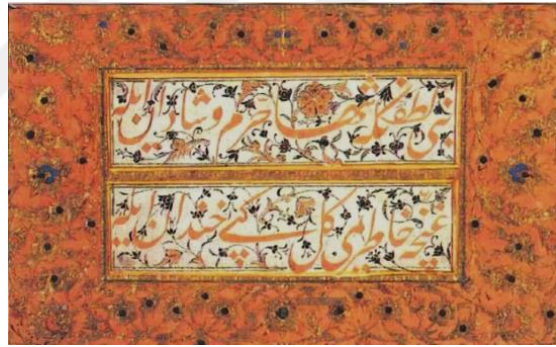 بنی لطفکله شها خرم و شادان ایله
غنچهٔ خاطرمی کل کبی خندان ایله